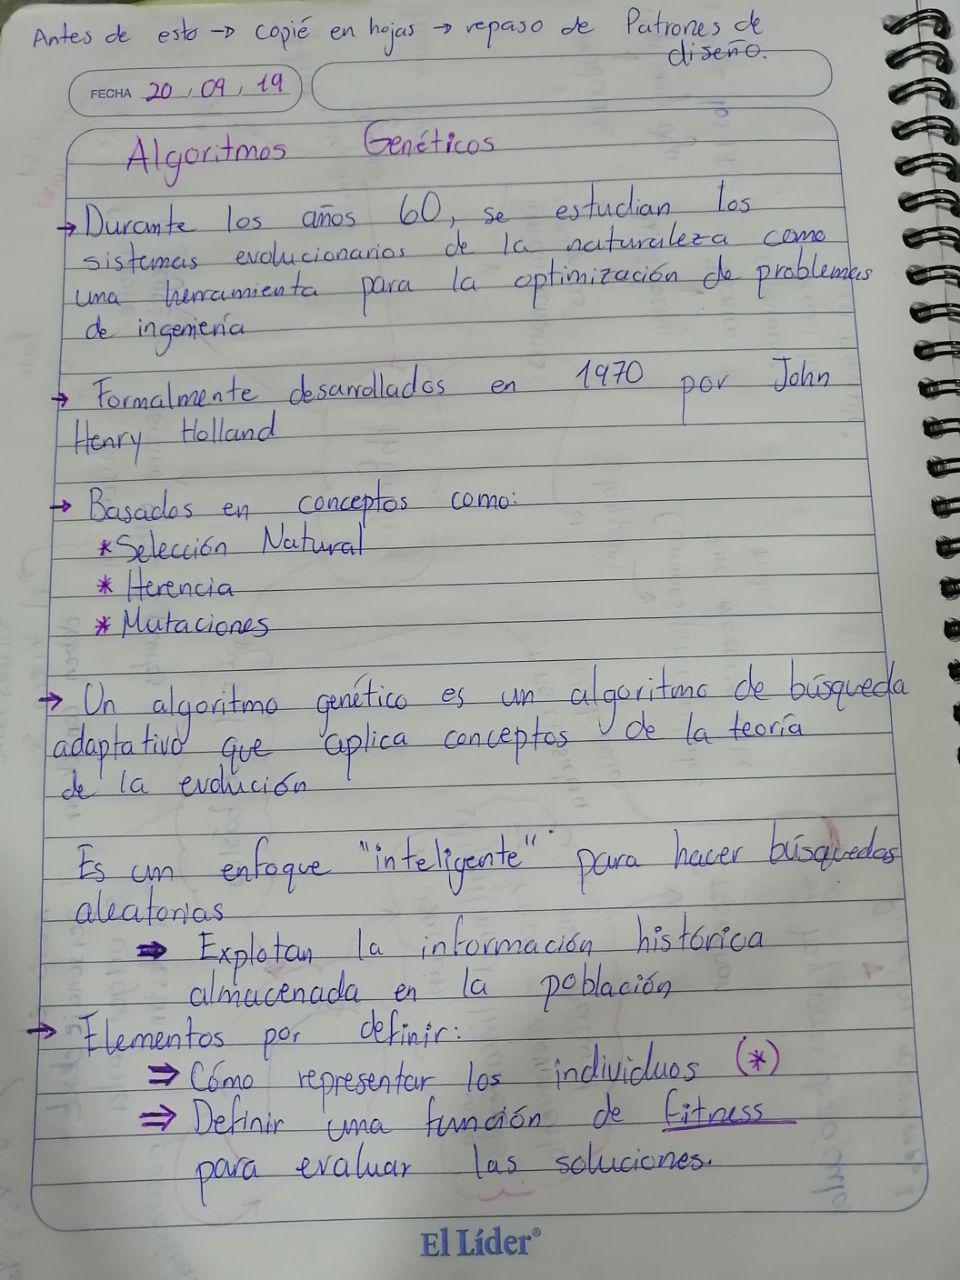 Antes de esto → copié en hojas → repaso de Patrones de
diseño.
FECHA 20 / 09 / 19
Algoritmos Genéticos
→ Durante los años 60, se estudian los
sistemas evolucionarios de la naturaleza como
una herramienta para la optimización de problemas
de ingeniería
→ Formalmente desarrollados en 1970 por John
Henry Holland
→ Basados en conceptos como:
* Selección Natural
* Herencia
* Mutaciones
→ Un algoritmo genético es un algoritmo de búsqueda
adaptativo que aplica conceptos de la teoría
de la evolución
Es un enfoque "inteligente" para hacer búsquedas
aleatorias
⇒ Explotan la información histórica
almacenada en la población
→ Elementos por definir:
⇒ Cómo representar los individuos (*)
⇒ Definir una función de fitness
para evaluar las soluciones.
El Líder®